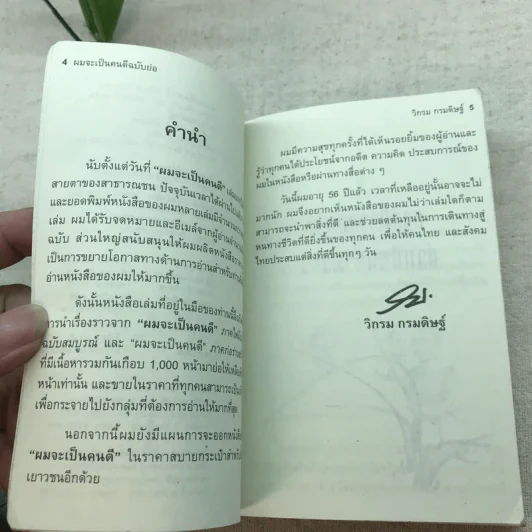 4 ผมจะเป็นคนดีฉบับย่อ
คำนำ
นับตั้งแต่วันที่ “ผมจะเป็นคนดี”
สายตาของสาธารณชน ปัจจุบันเวลาได้ผ่าน
และยอดพิมพ์หนังสือของผมหลายเล่มมีจำนวน
เล่ม ผมได้รับจดหมายและอีเมล์จากผู้อ่าน
ฉบับ ส่วนใหญ่สนับสนุนให้ผมผลิตหนังสือ
เป็นการขยายโอกาสทางด้านการอ่านสำหรับ
อ่านหนังสือของผมให้มากขึ้น
ดังนั้นหนังสือเล่มที่อยู่ในมือของท่าน
การนำเรื่องราวจาก “ผมจะเป็นคนดี”
ฉบับสมบูรณ์ และ “ผมจะเป็นคนดี”
ที่มีเนื้อหารวมกันเกือบ 1,000 หน้ามาย่อให้
หน้าเท่านั้น และขายในราคาที่ทุกคนสามารถ
เพื่อกระจายไปยังกลุ่มที่ต้องการอ่านให้มากที่สุด
นอกจากนี้ผมยังมีแผนการจะออกหนังสือ
“ผมจะเป็นคนดี” ในราคาสบายกระเป๋าสำหรับ
เยาวชนอีกด้วย
วิกรม กรมดิษฐ์ 5
ผมมีความสุขทุกครั้งที่ได้เห็นรอยยิ้มของผู้อ่านและ
รู้ว่าทุกคนได้ประโยชน์จากอดีต ความคิด ประสบการณ์ของ
ผมในหนังสือหรือผ่านทางสื่อต่าง ๆ
วันนี้ผมอายุ 56 ปีแล้ว เวลาที่เหลืออยู่นั้นอาจจะไม่
มากนัก ผมจึงอยากเห็นหนังสือของผมไม่ว่าเล่มใดก็ตาม
สามารถจะนำพาสิ่งที่ดี และช่วยลดต้นทุนในการเดินทางสู่
หนทางชีวิตที่ดียิ่งขึ้นของทุกคน เพื่อให้คนไทย และสังคม
ไทยประสบแต่สิ่งที่ดีขึ้นทุกๆ วัน
วิกรม กรมดิษฐ์